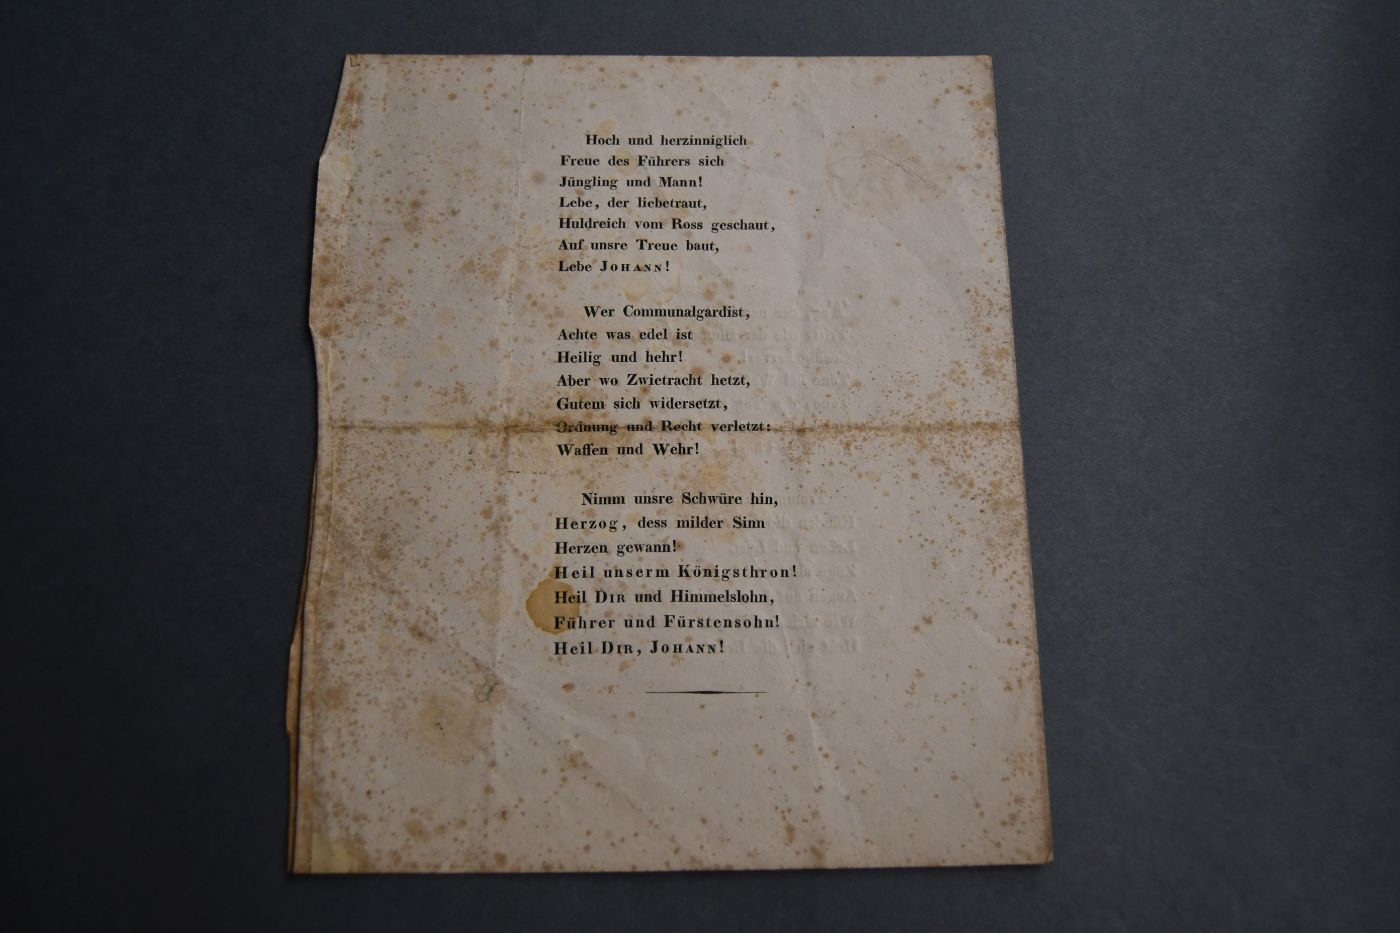 Hoch und herzinniglich
Freue des Führers sich
Jüngling und Mann!
Lebe, der liebetraut,
Huldreich vom Ross geschaut,
Auf unsre Treue baut,
Lebe JOHANN!
Wer Communalgardist,
Achte was edel ist
Heilig und hehr!
Aber wo Zwietracht hetzt,
Gutem sich widersetzt,
Ordnung und Recht verletzt:
Waffen und Wehr!
Nimm unsre Schwüre hin,
Herzog, dess milder Sinn
Herzen gewann!
Heil unserm Königsthron!
Heil DIR und Himmelslohn,
Führer und Fürstensohn!
Heil DIR, JOHANN!